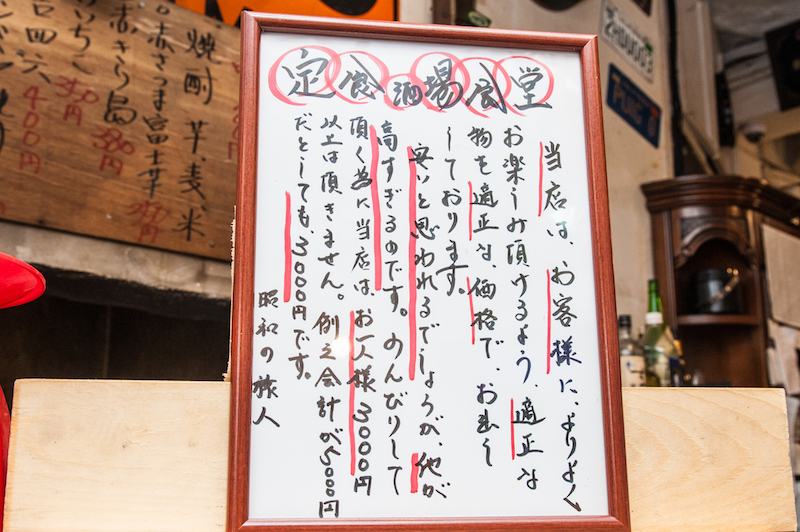 定食酒場食堂
当店は、お客様に、よりよく
お楽しみ頂けるよう、適正な
物を適正な、価格で、お出し
しております。
安いと思われるでしょうが、他が
高すぎるのです。のんびりして
頂く為に当店は、お一人様3000円
以上は頂きません。例え会計が5000円
だとしても、3000円です。
昭和の旅人
焼酎 芋、麦、米
赤さつま富士芋
赤きり島
380円
350円
400円